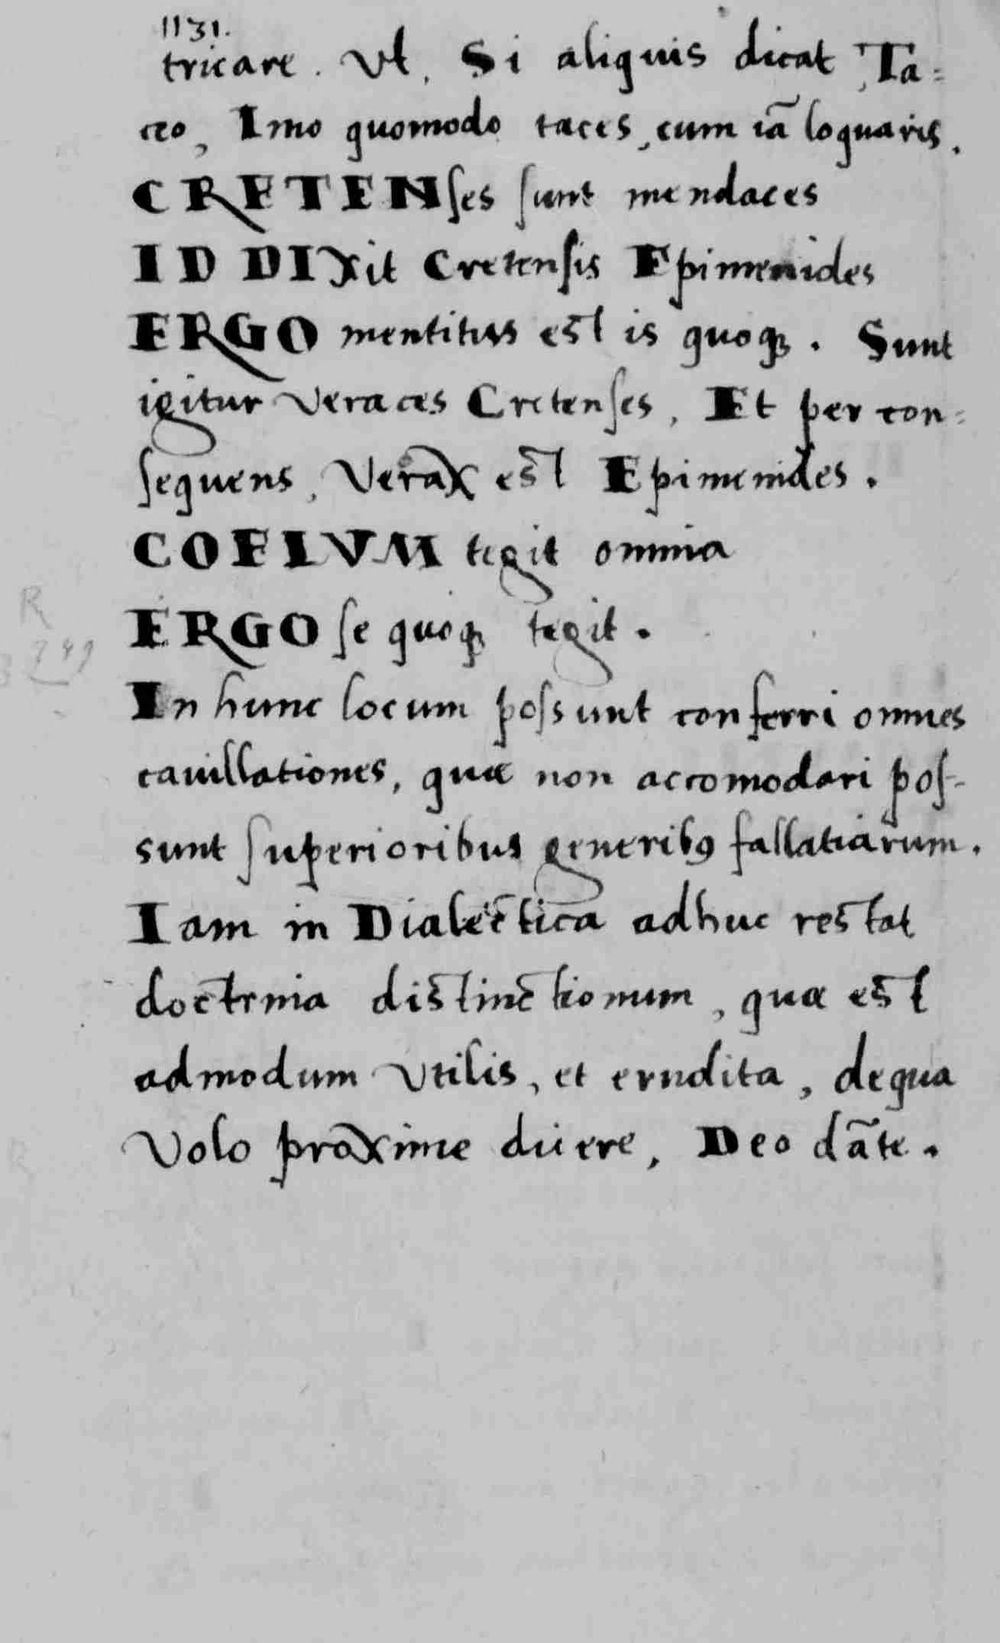 1131.
tricare. Vt, Si aliquis dicat, Ta=
ceo, Imo quomodo taces, cum iā loquaris.
CRETENses sunt mendaces
ID DIXit Cretensis Epimenides
ERGO mentitus est is quoqꝫ. Sunt
igitur veraces Cretenses, Et per con=
sequens, Verax est Epimenides.
COELVM tegit omnia
ERGO se quoqꝫ tegit.
In hunc locum possunt conferri omnes
cauillationes, quæ non accomodari pos-
sunt superioribus generibꝰ fallatiarum.
Iam in Dialectica adhuc restat
doctrina distinctionum, quæ est
admodum vtilis, et erudita, de qua
Volo proxime dicere, Deo dāte.